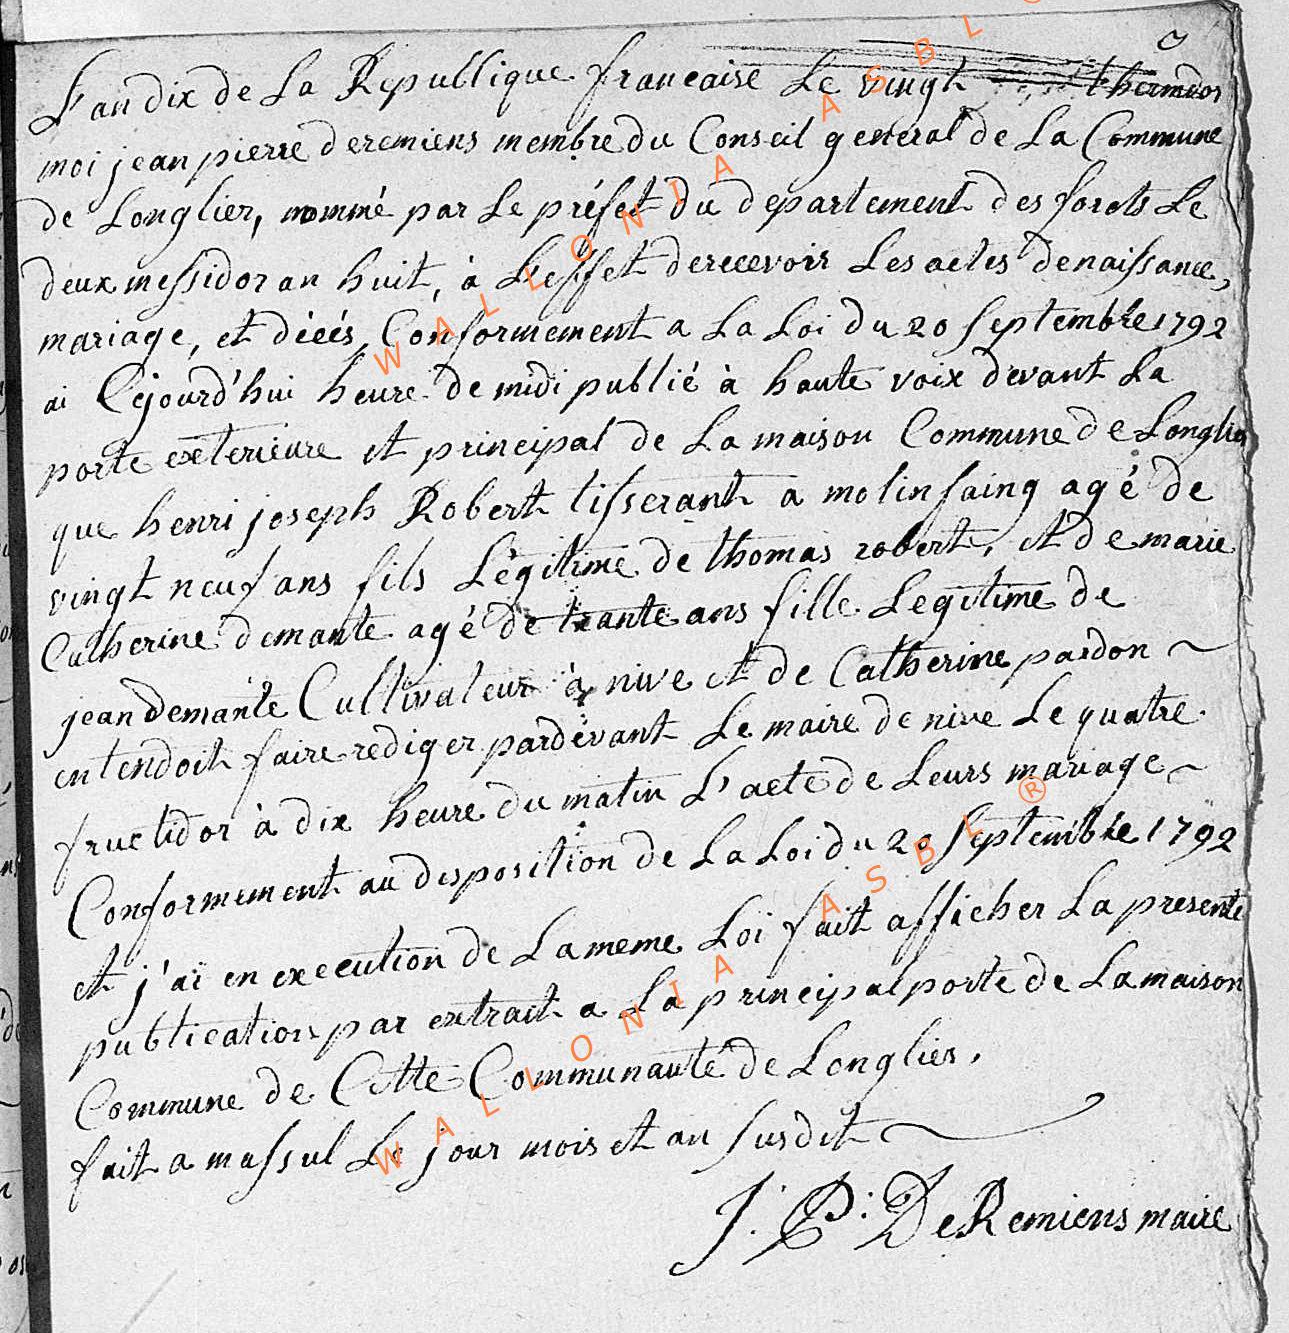 L'an dix de La Republique francaise Le vingt thermidor
moi jean pierre deremiens membre du Conseil general de La Commune
de Longlier, nommé par Le préfet du departement des forets Le
deux messidor an huit, à L'effet derecevoir Les actes denaissance,
mariage, et décés, Conformement a La Loi du 20 Septembre 1792
ai Cejourd'hui heure de midi publié à haute voix devant La
porte exterieure et principal de La maison Commune de Longlier
que henri joseph Robert tisserant a molinfaing agé de
vingt neuf ans fils Légitime de thomas robert, et de marie
Catherine demante agé de trante ans fille Legitime de
jean Demante Cultivateur à nive et de Catherine pardon
entendoit faire rediger pardevant Le maire de nive Le quatre
fructidor à dix heure du matin L'acte de Leurs mariage
Conformement au disposition de La Loi du 20 Septembre 1792
et j'ai en execution de La meme Loi fait afficher La presente
publication par extrait a La principal porte de La maison
Commune de Cette Communauté de Longlier.
fait a massul Le jour mois et an susdit
J. P. DeRemiens maire
WALLONIA ASBL ®
WALLONIA ASBL ®